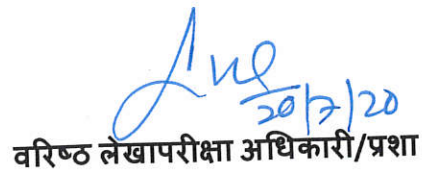 20/7/20
वरिष्ठ लेखापरीक्षा अधिकारी/प्रशा